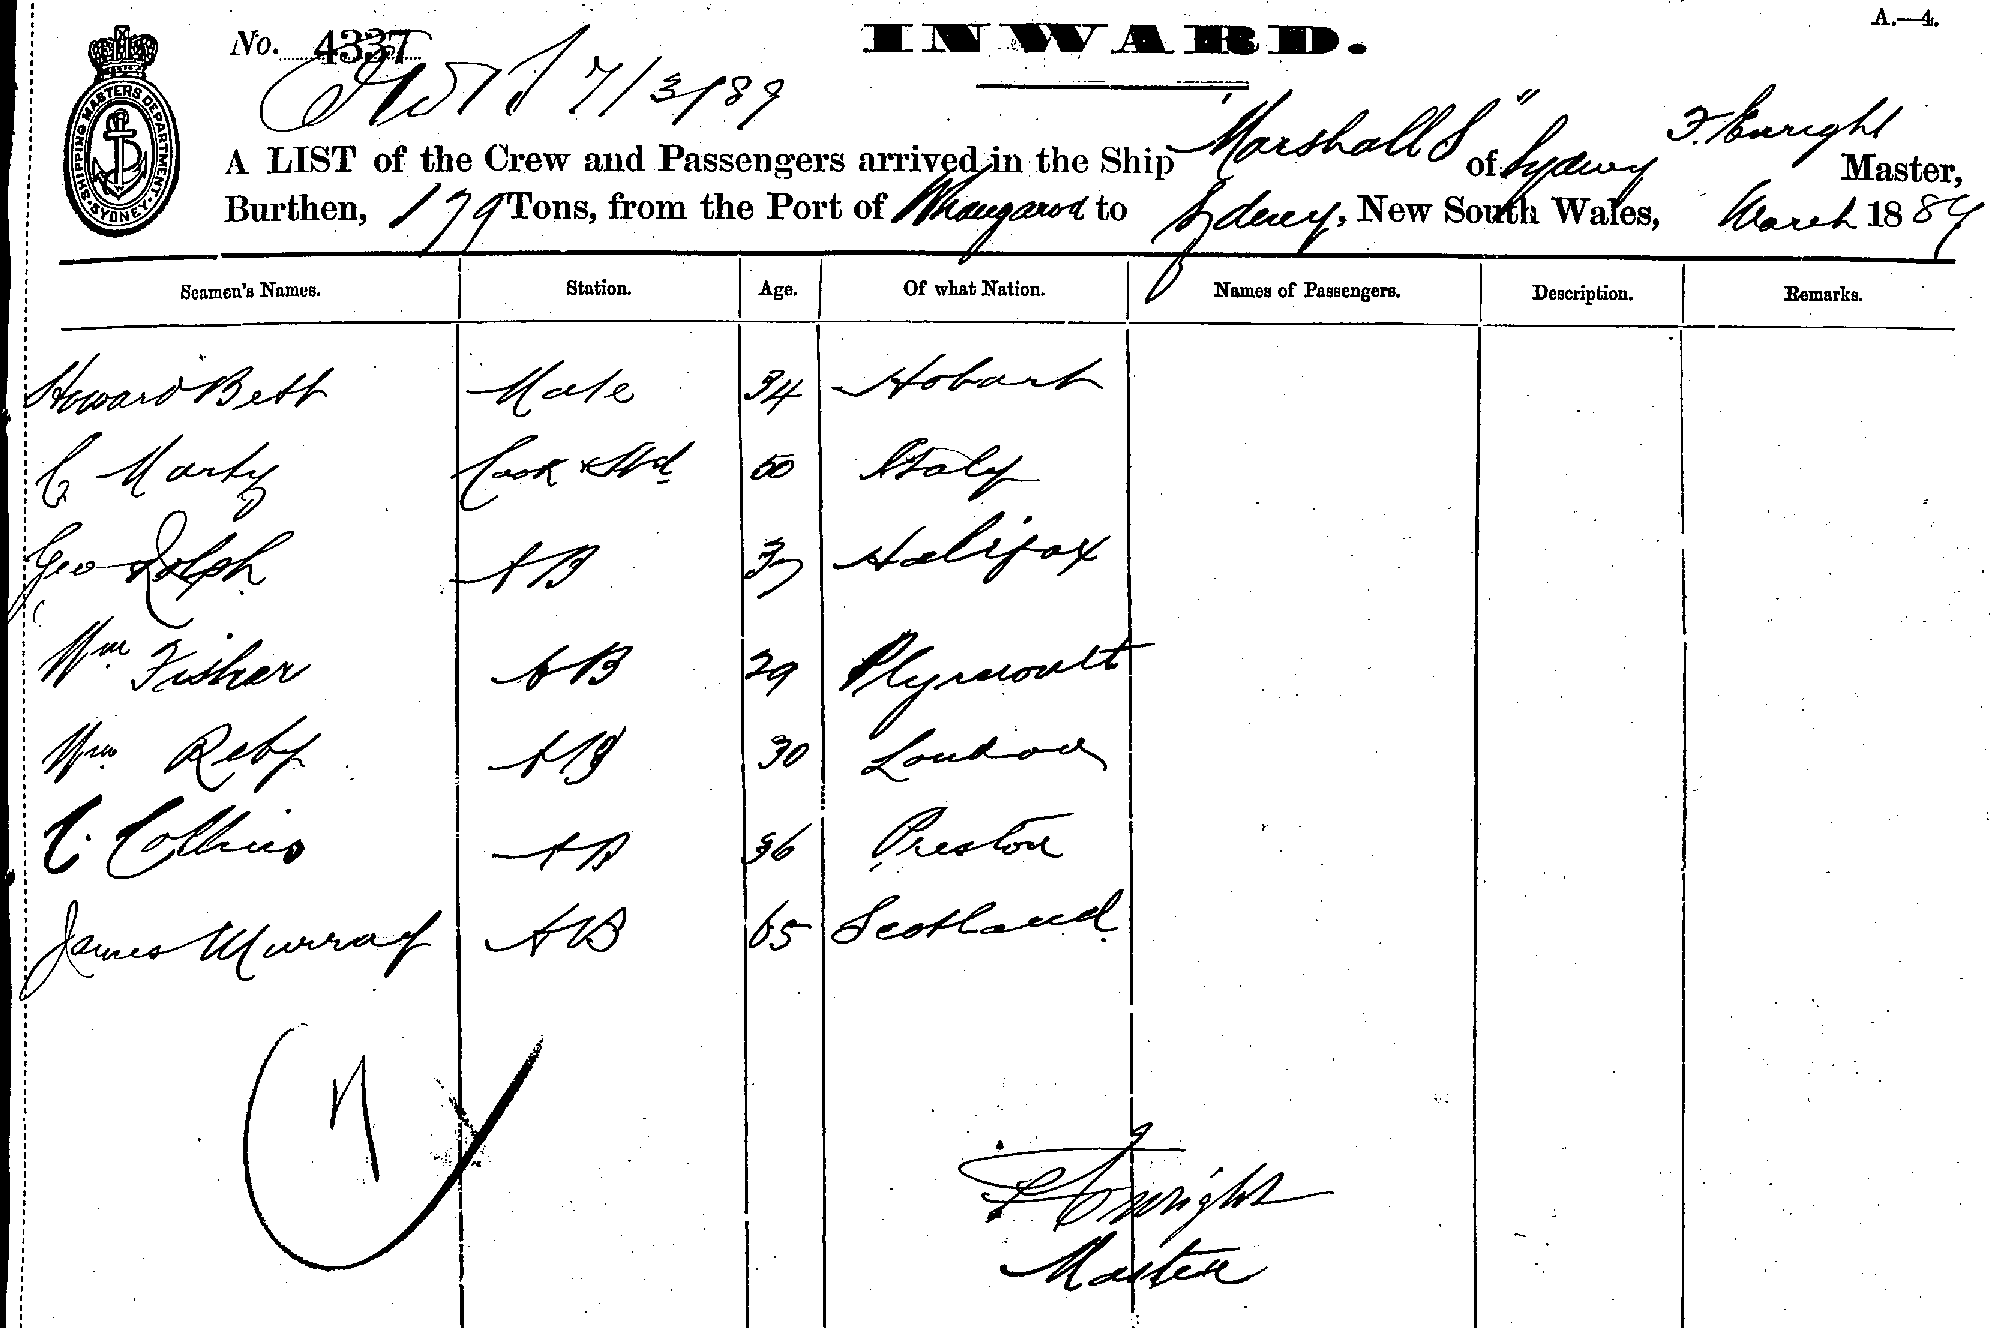 A.—4.
No. 4337
INWARD.
7/3/89
SHIPPING MASTERS DEPARTMENT. SYDNEY.
A LIST of the Crew and Passengers arrived in the Ship "Marshall S" of Sydney F. Enright Master,
Burthen, 179 Tons, from the Port of Whangaroa to Sydney, New South Wales, March 1889
Seamen's Names. Station. Age. Of what Nation. Names of Passengers. Description. Remarks.
Howard Bett Mate 34 Hobart
C Marty Cook & Stwd 50 Italy
Geo Rolph AB 37 Halifax
Wm Fisher AB 29 Plymouth
Wm Reby AB 30 London
C. Collins AB 36 Preston
James Murray AB 65 Scotland
7
F Enright
Master